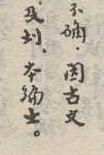 不确，因古文
及刘，本编去。